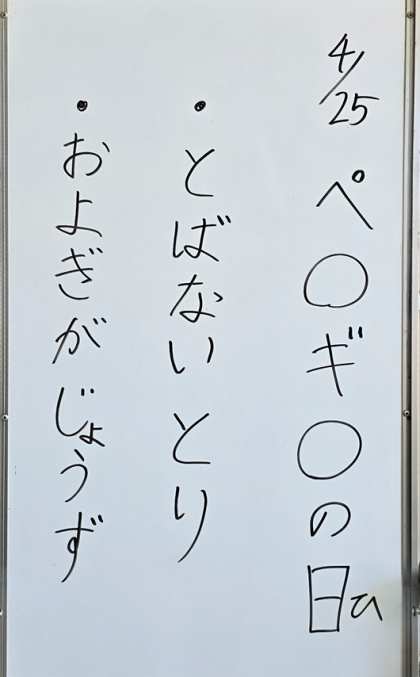 4/25 ペ〇ギ〇の日
・とばないとり
・およぎがじょうず